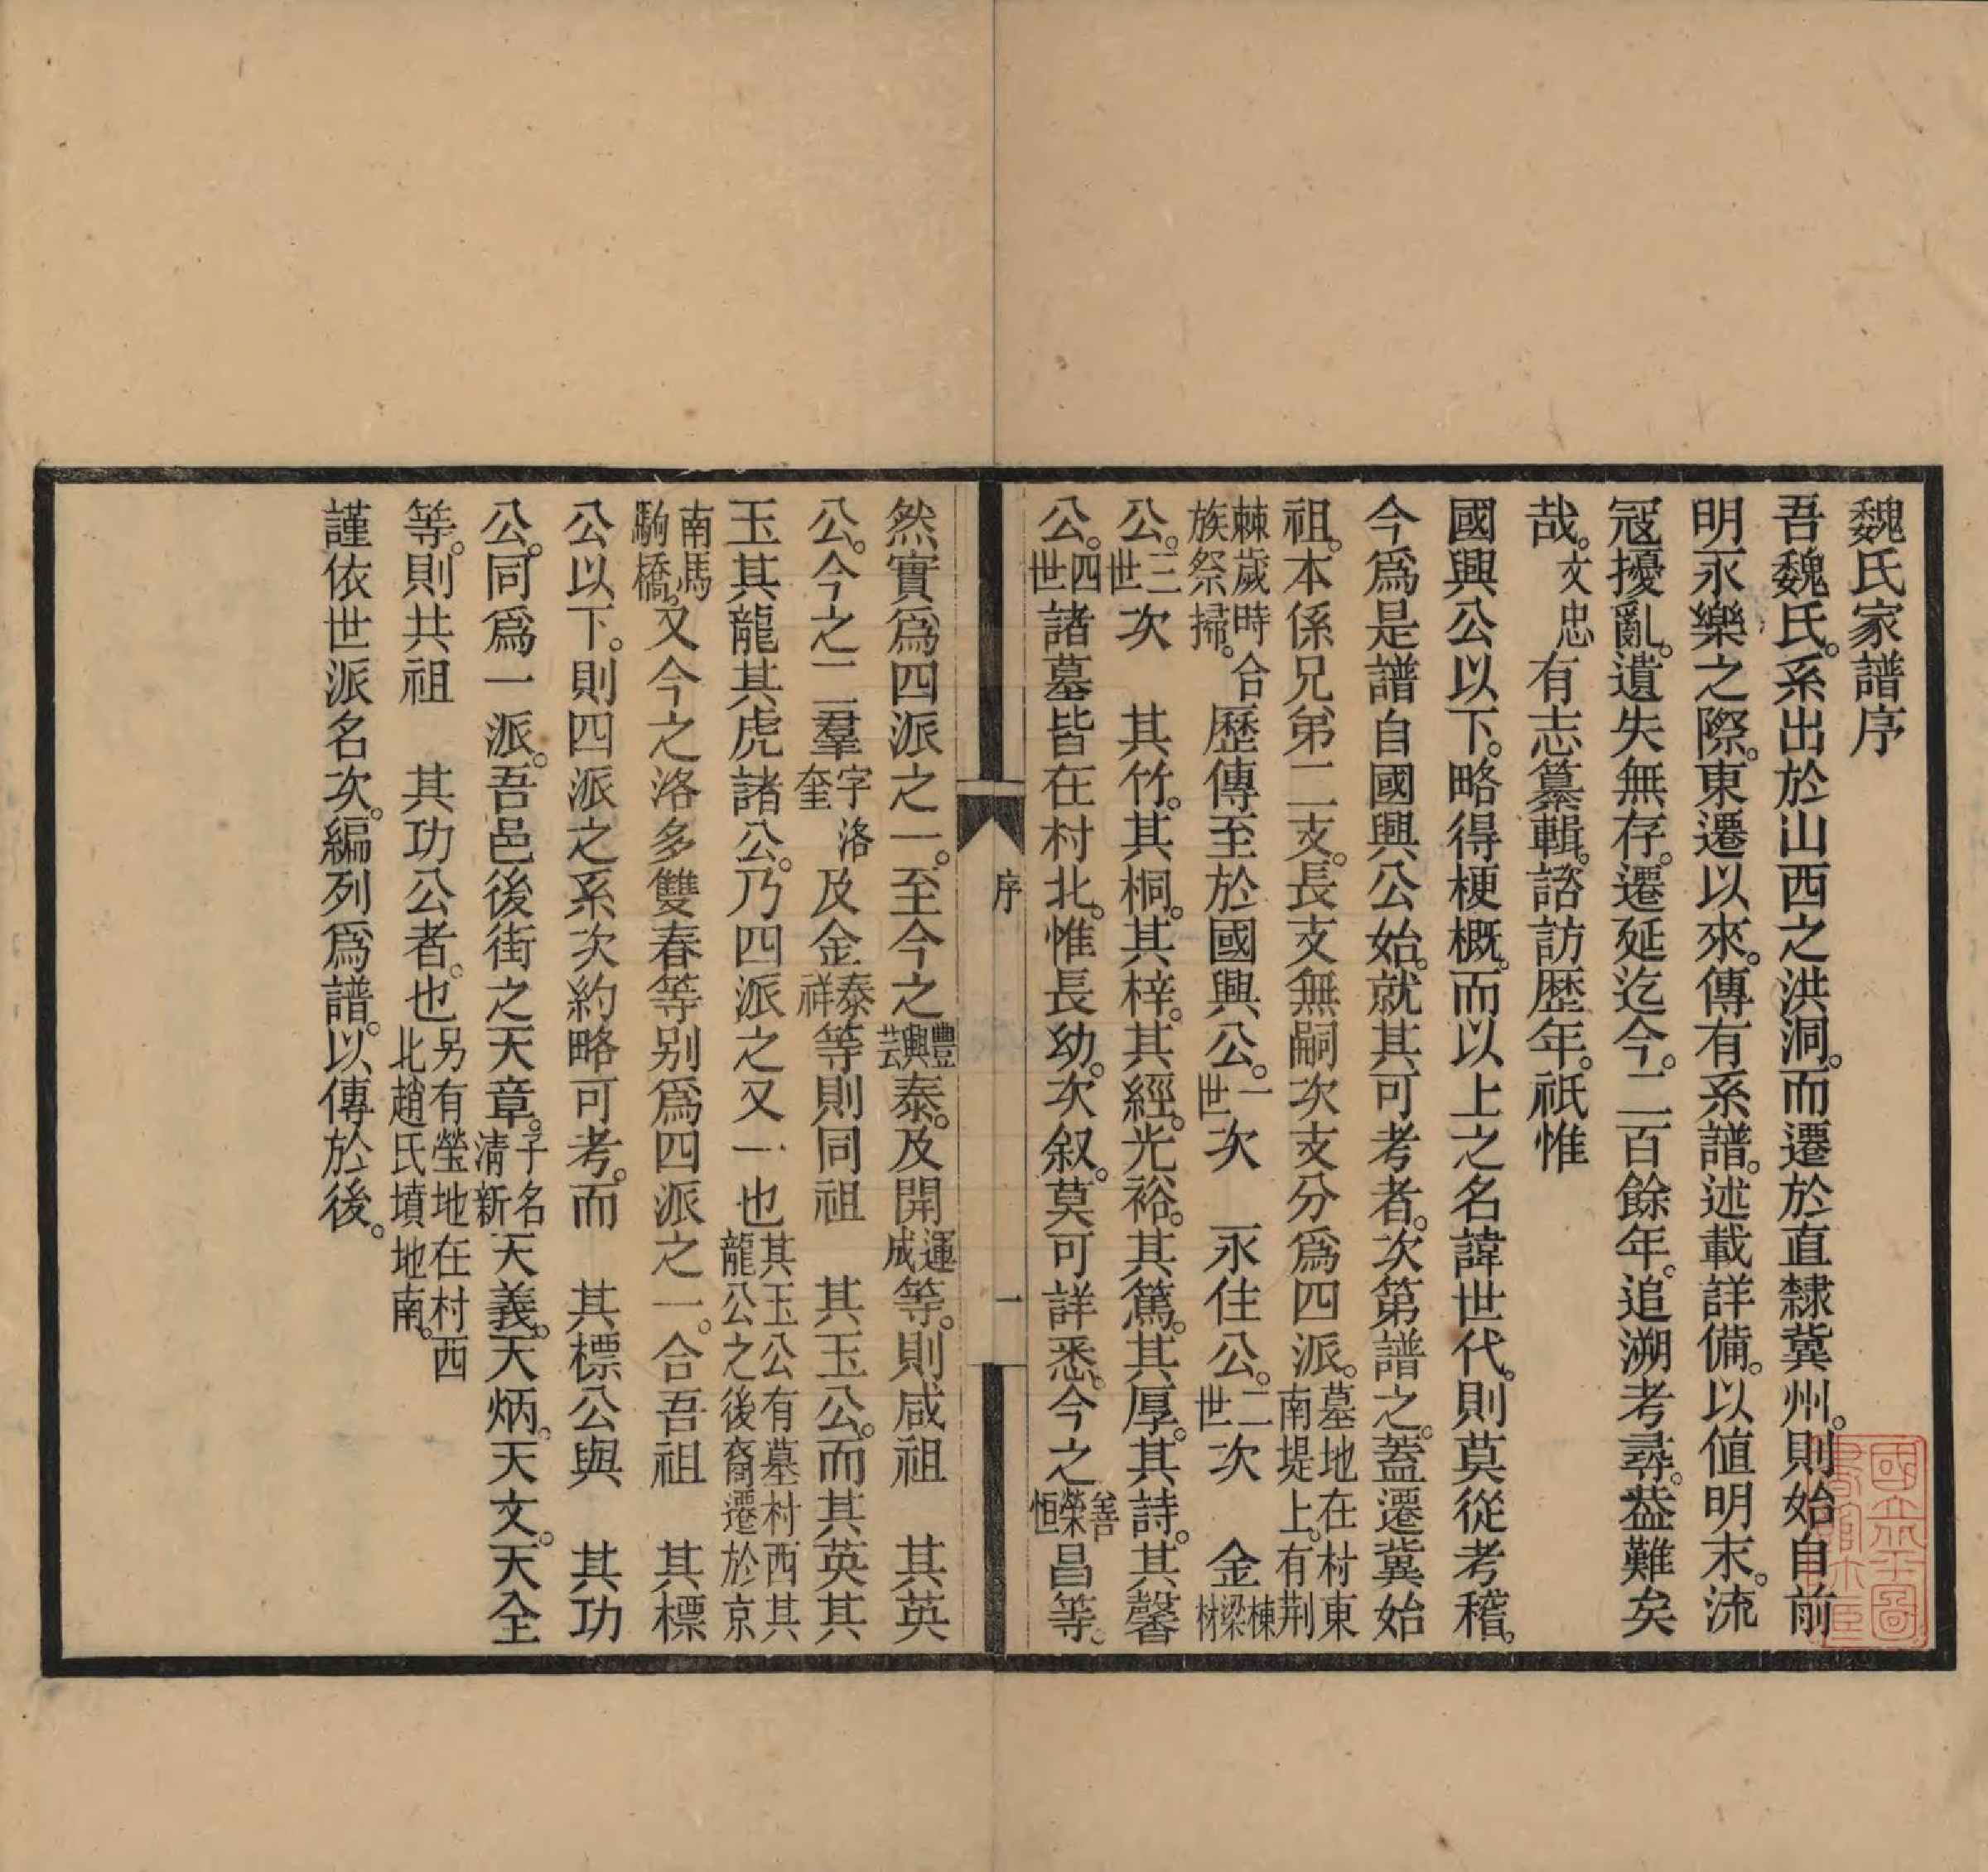 魏氏家譜序
吾魏氏。系出於山西之洪洞。而遷於直隸冀州。則始自前
明永樂之際。東遷以來。傳有系譜。述載詳備。以値明末。流
冦擾亂。遺失無存。遷延迄今。二百餘年。追溯考尋。益難矣
哉。文忠有志纂輯。諮訪歷年。祇惟
國興公以下。略得梗概。而以上之名諱世代。則莫從考稽。
今爲是譜自國興公始。就其可考者。次第譜之。蓋遷冀始
祖。本係兄弟二支。長支無嗣次支分爲四派。墓地在村東南堤上。有荆
棘歲時合族祭掃。歷傳至於國興公。一世次　永住公。二世次　金棟梁材
公。三世次　其竹。其桐。其梓。其經。光裕。其篤。其厚。其詩。其馨
公。四世諸墓皆在村北。惟長幼。次叙。莫可詳悉。今之善榮恒昌等。
序
一
然實爲四派之一。至今之豐興芸泰。及開運成等。則咸祖　其英
公。今之二羣字奎洛及金泰祥等則同祖　其玉公。而其英其
玉其龍其虎諸公。乃四派之又一也其玉公有墓村西其龍公之後裔遷於京
南馬駒橋。又今之洛多雙春等别爲四派之一。合吾祖　其標
公以下。則四派之系次約略可考。而　其標公與　其功
公。同爲一派。吾邑後街之天章。子名清新天義。天炳。天文。天全
等。則共祖　其功公者。也另有瑩地在村西北趙氏墳地南。
謹依世派名次。編列爲譜。以傳於後。